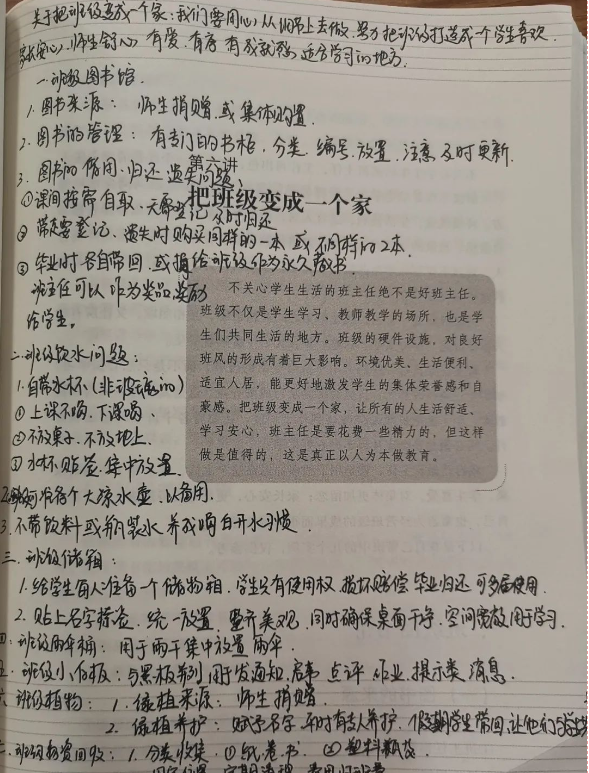 关于把班级变成一个家：我们要用心从细节上去做，努力把班级打造成一个学生喜欢
家长安心，师生舒心，有爱，有序，有成就感，适合学习的地方.
一.班级图书馆.
1. 图书来源： 师生捐赠 或 集体购置.
2. 图书的管理： 有专门的书柜，分类，编号，放置，注意及时更新.
3. 图书的借用.归还 遗失问题：
第六讲
①课间按需自取、无需登记 及时归还
把班级变成一个家
② 带走要登记、遗失时购买同样的一本 或 不同样的2本.
③ 毕业时各自带回.或捐给班级作为永久藏书.
班主任可以作为奖品，奖励
给学生。
不关心学生生活的班主任绝不是好班主任。
班级不仅是学生学习、教师教学的场所，也是学
生们共同生活的地方。班级的硬件设施，对良好
班风的形成有着巨大影响。环境优美、生活便利、
适宜人居，能更好地激发学生的集体荣誉感和自
豪感。把班级变成一个家，让所有的人生活舒适、
学习安心，班主任是要花费一些精力的，但这样
做是值得的，这是真正以人为本做教育。
二.班级饮水问题：
1.自带水杯(非玻璃的)
① 上课不喝.下课喝
②不放桌子.不放地上.
③ 水杯贴签.集中放置
大凉水壶.以备用.
3.不带饮料或瓶装水 养成喝白开水习惯.
三.班级储物箱：
1.给学生每人准备一个储物箱.学生只有使用权 损坏赔偿 毕业归还 可多届使用.
2. 贴上名字标签. 统一放置 整齐美观.同时确保桌面干净.空间宽敞用于学习.
四.班级雨伞桶：用于雨天集中放置雨伞.
五.班级小白板：与黑板并列 用于发通知.启事 点评 作业.提示类 消息.
六 班级植物： 1. 绿植来源： 师生捐赠.
2. 绿植养护： 赋予名字.平时有专人养护.假期学生带回.让他们与
班级物资回收： 1. 分类收集. ① 纸卷书. ② 塑料瓶